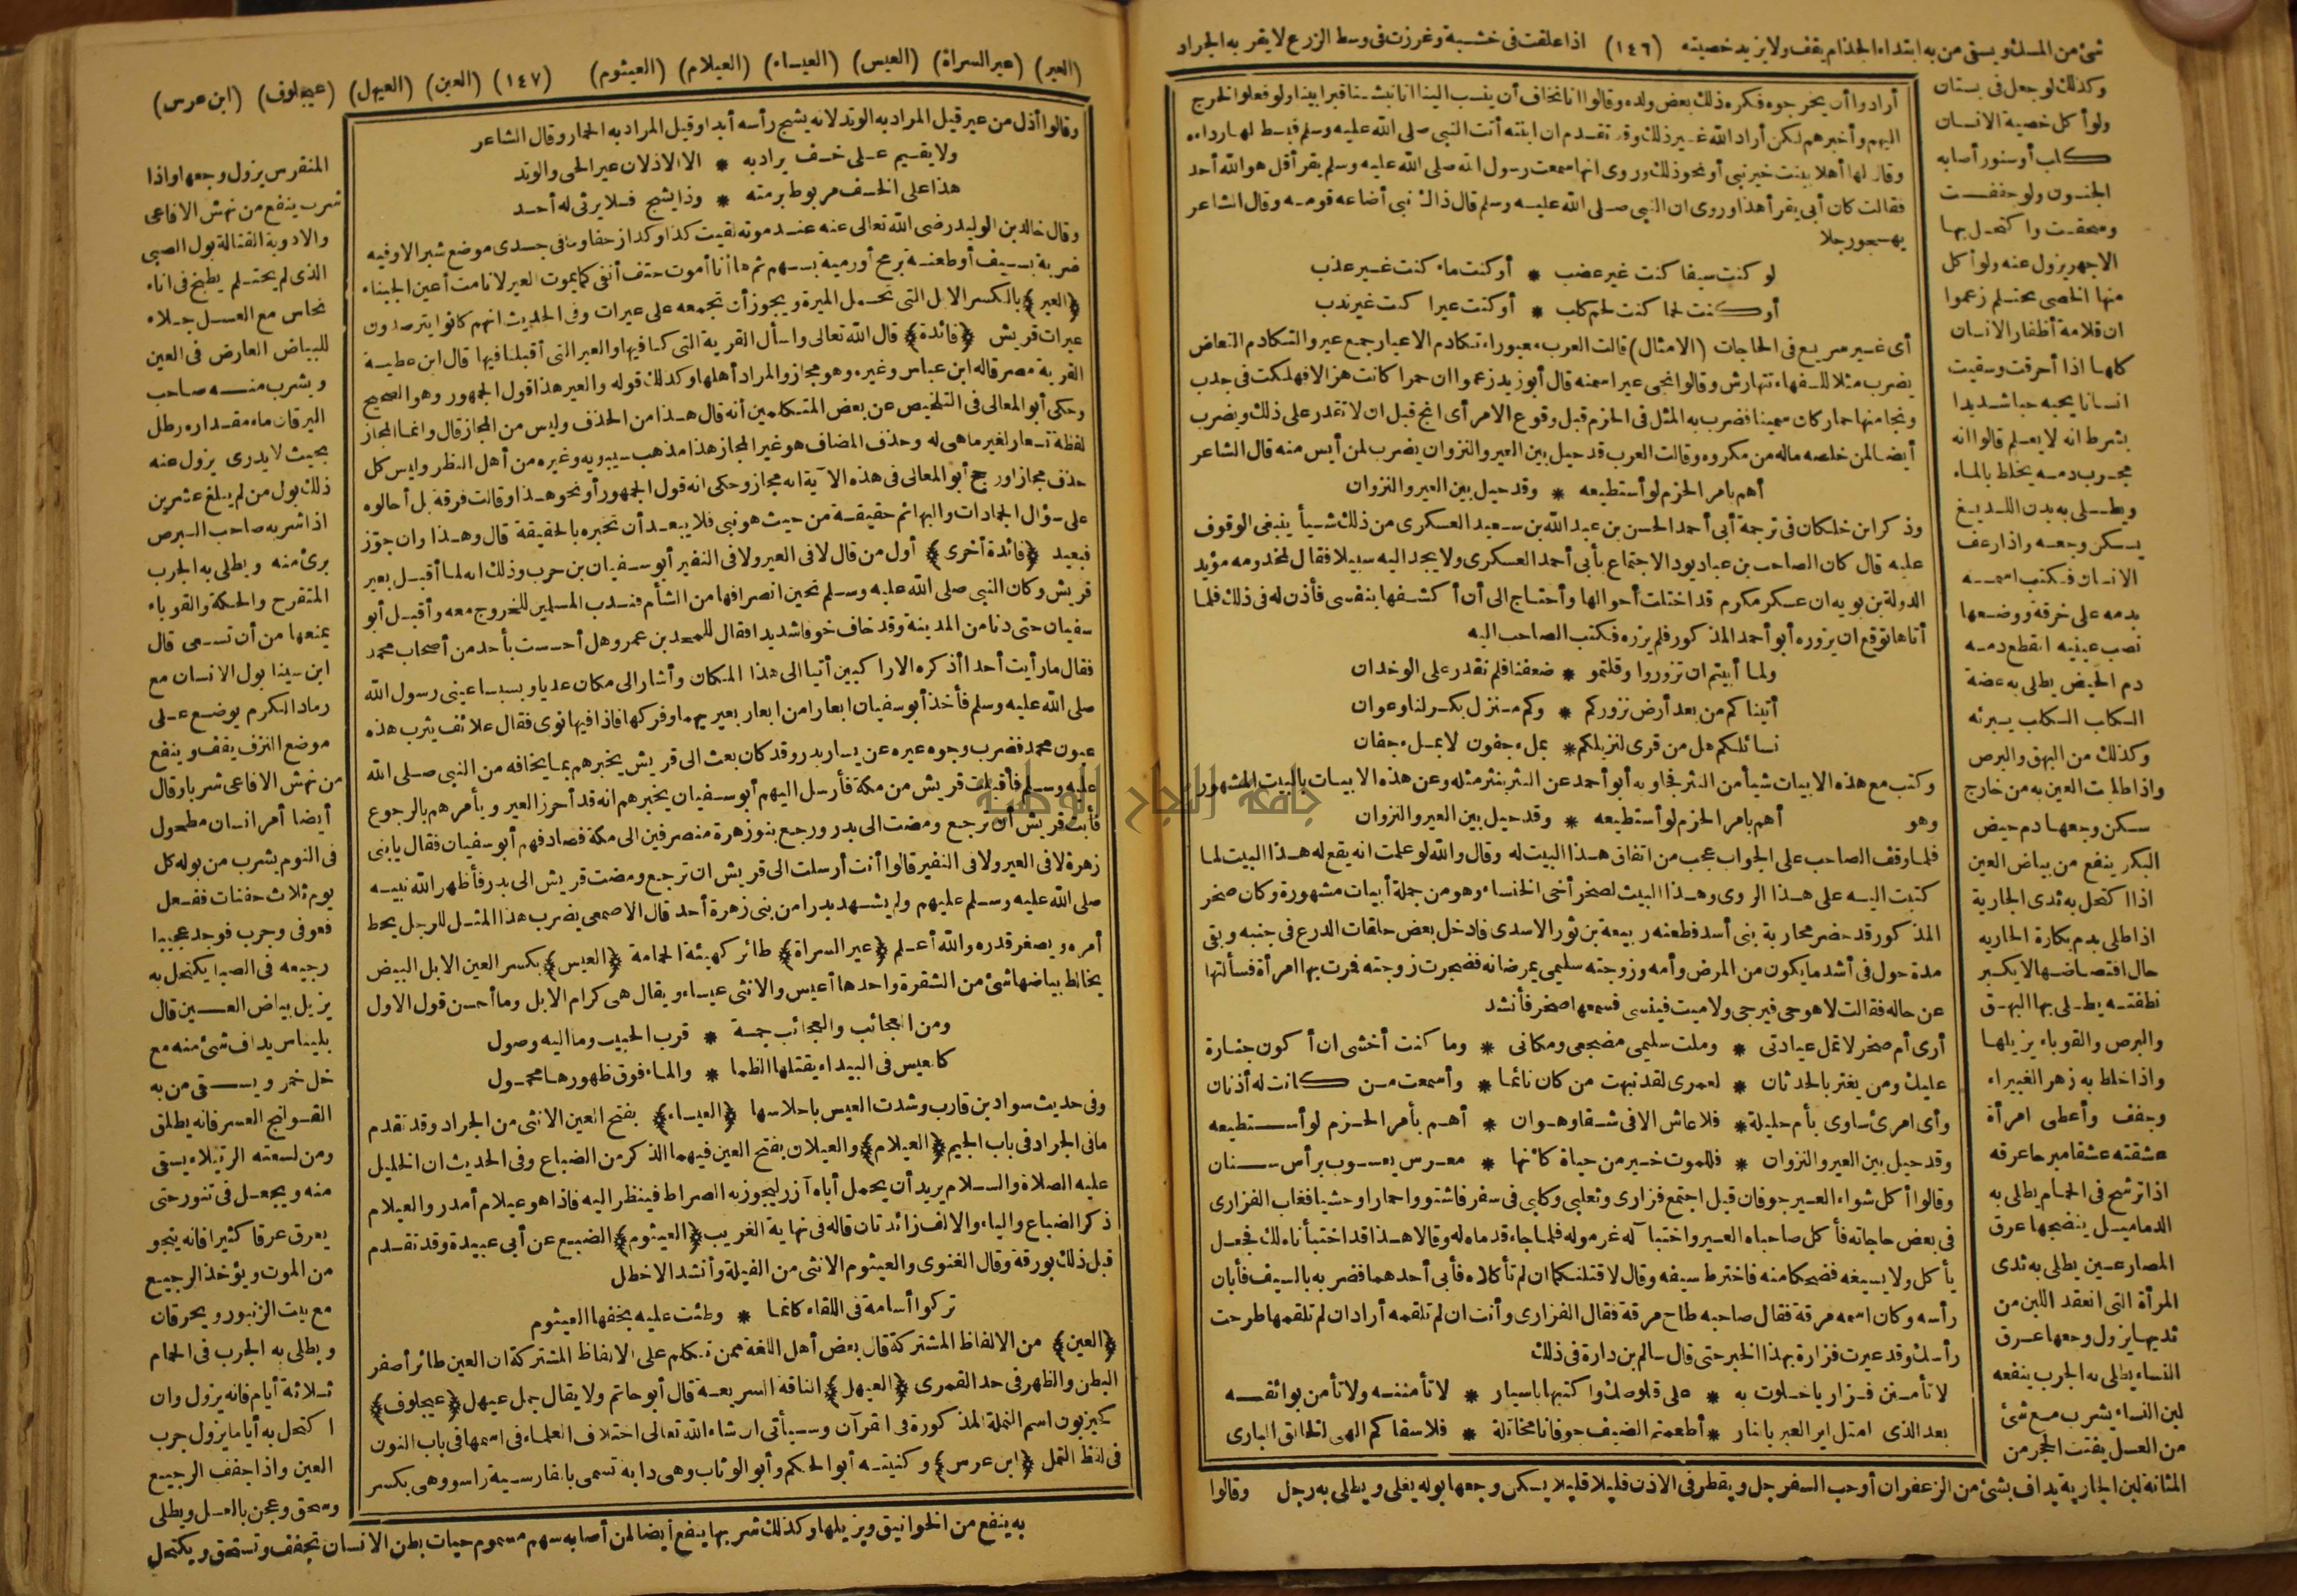 شئ من المسك ويسقى من به ابتداء الجذام يقف ولا يزيد خصيته (١٤٦) اذا علقت فى خشبة وغرزت فى وسط الزرع لا يقربه الجراد
وكذلك لو جعل فى بستان
ولو أكل خصية الانسان
كلب أو سنور أصابه
الجنون ولو جففت
وسحقت واكتحل بها
الاجهر يزول عنه ولو أكل
منها الخصى يحتلم زعموا
ان قلامة أظفار الانسان
كلها اذا أحرقت وسقيت
انسانا يحبه حبا شديدا
بشرط انه لا يعلم قالوا انه
مجرب دمه يخلط بالماء
ويطلى به بدن اللديغ
يسكن وجعه واذا رعف
الانسان فكتب اسمه
بدمه على خرقة ووضعها
نصب عينيه انقطع دمه
دم الحيض يطلى به عضة
الكلب الكلب يبرئه
وكذلك من البهق والبرص
واذا طليت العين به من خارج
سكن وجعها دم حيض
البكر ينفع من بياض العين
اذا اكتحل به ثدى الجارية
اذا طلى بدم بكارة الجاريه
حال افتضاضها لا يكبر
نطفته يطلى بها البهق
والبرص والقوباء يزيلها
واذا خلط به زهر الغبيراء
وجفف وأعطى امرأة
عشقته عشقا مبرحا عرقه
اذا ترشح فى الحمام يطلى به
الدماميل ينضجها عرق
المصارعين يطلى به ثدى
المرأة التى انعقد اللبن من
ثديها يزول وجعها عرق
النساء يطلى به الجرب ينفعه
لبن النساء يشرب مع شئ
من العسل يفتت الحجر من
المثانة لبن الجارية يداف بشئ من الزعفران أو حب السفرجل ويقطر فى الاذن قليلا قليلا يسكن وجعها بوله يغلى ويطلى به رجل
أرادوا أن يخرجوه فكره ذلك بعض ولده وقالوا انا نخاف أن ينسب الينا انا نبشنا قبر ابينا ولو فعلوا لخرج
اليهم وأخبرهم لكن أراد الله غير ذلك وقد تقدم ان ابنته أتت النبى صلى الله عليه وسلم فبسط لها رداءه
وقال لها أهلا ببنت خير نبى أو نحو ذلك وروى انها سمعت رسول الله صلى الله عليه وسلم يقرأ قل هو الله أحد
فقالت كان أبى يقرأ هذا وروى ان النبى صلى الله عليه وسلم قال ذاك نبى أضاعه قومه وقال الشاعر
يهجو رجلا
لو كنت سيفا كنت غير عضب * أو كنت ماء كنت غير عذب
أو كنت لحما كنت لحم كلب * أو كنت عيرا كنت غير ندب
أى غير سريع فى الحاجات (الامثال) قالت العرب معيوراء تكادم الاعيار جمع عير والتكادم التعاض
يضرب مثلا للسفهاء تتهارش وقالوا نجى عيرا سمنه قال أبو زيد زعموا ان حمرا كانت هزالا فهلكت فى جدب
ونجا منها حمار كان سمينا فضرب به المثل فى الحزم قبل وقوع الامر أى انج قبل ان لا تقدر على ذلك ويضرب
أيضا لمن خلصه ماله من مكروه وقالت العرب قد حيل بين العير والنزوان يضرب لمن أيس منه قال الشاعر
أهم بامر الحزم لو أستطيعه * وقد حيل بين العير والنزوان
وذكر ابن خلكان فى ترجمة أبى أحمد الحسن بن عبد الله بن سعيد العسكرى من ذلك شيأ ينبغى الوقوف
عليه قال كان الصاحب بن عباد يود الاجتماع بأبى أحمد العسكرى ولا يجد اليه سبيلا فقال لمخدومه مؤيد
الدولة بن بويه ان عسكر مكرم قد اختلت أحوالها وأحتاج الى أن أكشفها بنفسى فأذن له فى ذلك فلما
أتاها توقع ان يزوره أبو أحمد المذكور فلم يزره فكتب الصاحب اليه
ولما أبيتم ان تزوروا وقلتمو * ضعفنا فلم نقدر على الوخدان
أتيناكم من بعد أرض نزوركم * وكم منزل بكر لنا وعوان
نسائلكم هل من قرى لنزيلكم * بملء جفون لا بملء جفان
وكتب مع هذه الابيات شيأ من النثر فجاوبه أبو أحمد عن النثر بنثر مثله وعن هذه الابيات بالبيت المشهور
وهو أهم بامر الحزم لو أستطيعه * وقد حيل بين العير والنزوان
فلما وقف الصاحب على الجواب عجب من اتفاق هذا البيت له وقال والله لو علمت انه يقع له هذا البيت لما
كتبت اليه على هذا الروى وهذا البيت لصخر أخى الخنساء وهو من جملة أبيات مشهورة وكان صخر
المذكور قد حضر محاربة بنى أسد فطعنه ربيعة بن ثور الاسدى فادخل بعض حلقات الدرع فى جنبه وبقى
مدة حول فى أشد ما يكون من المرض وأمه وزوجته سليمى يمرضانه فضجرت زوجته فمرت بها امرأة فسألتها
عن حاله فقالت لا هو حى فيرجى ولا ميت فينسى فسمعها صخر فأنشد
أرى أم صخر لا تمل عيادتى * وملت سليمى مضجعى ومكانى * وما كنت أخشى ان أكون جنازة
عليك ومن يغتر بالحدثان * لعمرى لقد نبهت من كان نائما * وأسمعت من كانت له أذنان
وأى امرئ ساوى بأم حليلة * فلا عاش الا فى شقا وهوان * أهم بأمر الحزم لو أستطيعه
وقد حيل بين العير والنزوان * فللموت خير من حياة كأنها * معرس يعسوب برأس سنان
وقالوا أكل شواء العير جوفان قيل اجتمع فزارى وثعلبى وكلبى فى سفر فاشتووا حمارا وحشيا فغاب الفزارى
فى بعض حاجاته فأكل صاحباه العير واختبآ له غرموله فلما جاء قدماه له وقالا هذا قد اختبأناه لك فجعل
يأكل ولا يسيغه فضحكا منه فاخترط سيفه وقال لاقتلنكما ان لم تأكلاه فأبى أحدهما فضربه بالسيف فأبان
رأسه وكان اسمه مرقة فقال صاحبه طاح مرقة فقال الفزارى وأنت ان لم تلقمه أراد ان لم تلقمها طرحت
رأسك وقد عيرت فزارة بهذا الخبر حتى قال سالم بن دارة فى ذلك
لا تأمنن فزاريا خلوت به * على قلوصك واكتبها باسيار * لا تأمننه ولا تأمن بوائقه
بعد الذى امتل اير العير بالنار * أطعمتم الضيف جوفانا مخاتلة * فلا سقاكم الهى الخالق البارى
وقالوا
(العير) (عير السراة) (العيس) (العيساء) (العيلام) (العيثوم) (١٤٧) (العين) (العيهل) (عيجلوف) (ابن عرس)
وقالوا أذل من عير قيل المراد به الوتد لانه يشج رأسه أبدا وقيل المراد به الحمار وقال الشاعر
ولا يقيم على خسف يراد به * الا الاذلان عير الحى والوتد
هذا على الخسف مربوط برمته * وذا يشج فلا يرثى له أحد
وقال خالد بن الوليد رضى الله تعالى عنه عند موته لقيت كذا وكذا زحفا وما فى جسدى موضع شبر الا وفيه
ضربة بسيف أو طعنة برمح أو رمية بسهم ثم ها أنا أموت حتف أنفى كما يموت العير لا نامت أعين الجبناء
﴿العير﴾ بالكسر الابل التى تحمل الميرة ويجوز أن تجمعه على عيرات وفى الحديث انهم كانوا يترصدون
عيرات قريش ﴿فائدة﴾ قال الله تعالى واسأل القرية التى كنا فيها والعير التى أقبلنا فيها قال ابن عطية
القرية مصر قاله ابن عباس وغيره وهو مجاز والمراد أهلها وكذلك قوله والعير هذا قول الجمهور وهو الصحيح
وحكى أبو المعالى فى التلخيص عن بعض المتكلمين أنه قال هذا من الحذف وليس من المجاز قال وانما المجاز
لفظة تستعار لغير ما هى له وحذف المضاف هو غير المجاز هذا مذهب سيبويه وغيره من أهل النظر وليس كل
حذف مجازا ورجح أبو المعالى فى هذه الآية انه مجاز وحكى انه قول الجمهور أو نحو هذا وقالت فرقة بل أحالوه
على سؤال الجمادات والبهائم حقيقة من حيث هو نبى فلا يبعد أن تخبره بالحقيقة قال وهذا وان جوز
فبعيد ﴿فائدة أخرى﴾ أول من قال لا فى العير ولا فى النفير أبو سفيان بن حرب وذلك انه لما أقبل بعير
قريش وكان النبى صلى الله عليه وسلم تحين انصرافها من الشأم فندب المسلمين للخروج معه وأقبل أبو
سفيان حتى دنا من المدينة وقد خاف خوفا شديدا فقال للمجد بن عمرو هل أحسست بأحد من أصحاب محمد
فقال ما رأيت أحدا أنكره الا راكبين أتيا الى هذا المكان وأشار الى مكان عدى وبسبس عينى رسول الله
صلى الله عليه وسلم فأخذ أبو سفيان ابعارا من ابعار بعيريهما وفركها فاذا فيها نوى فقال علائف يثرب هذه
عيون محمد فضرب وجوه عيره عن يسار بدر وقد كان بعث الى قريش يخبرهم بما يخافه من النبى صلى الله
عليه وسلم فأقبلت قريش من مكة فأرسل اليهم أبو سفيان يخبرهم انه قد أحرز العير ويأمرهم بالرجوع
فأبت قريش أن ترجع ومضت الى بدر ورجع بنو زهرة منصرفين الى مكة فصادفهم أبو سفيان فقال يا بنى
زهرة لا فى العير ولا فى النفير قالوا أنت أرسلت الى قريش ان ترجع ومضت قريش الى بدر فأظهر الله نبيه
صلى الله عليه وسلم عليهم ولم يشهد بدرا من بنى زهرة أحد قال الاصمعى يضرب هذا المثل للرجل يحط
أمره ويصغر قدره والله أعلم ﴿عير السراة﴾ طائر كهيئة الحمامة ﴿العيس﴾ بكسر العين الابل البيض
يخالط بياضها شئ من الشقرة واحدها أعيس والانثى عيساء ويقال هى كرام الابل وما أحسن قول الاول
ومن العجائب والعجائب جمة * قرب الحبيب وما اليه وصول
كالعيس فى البيداء يقتلها الظما * والماء فوق ظهورها محمول
وفى حديث سواد بن قارب وشدت العيس باحلاسها ﴿العيساء﴾ بفتح العين الانثى من الجراد وقد تقدم
ما فى الجراد فى باب الجيم ﴿العيلام﴾ والعيلان بفتح العين فيهما الذكر من الضباع وفى الحديث ان الخليل
عليه الصلاة والسلام يريد أن يحمل أباه آزر ليجوز به الصراط فينظر اليه فاذا هو عيلام أمدر والعيلام
ذكر الضباع والياء والالف زائدتان قاله فى نهاية الغريب ﴿العيثوم﴾ الضبع عن أبى عبيدة وقد تقدم
قبل ذلك بورقة وقال الغنوى والعيثوم الانثى من الفيلة وأنشد الاخطل
تركوا أسامة فى اللقاء كانما * وطئت عليه بخفها العيثوم
﴿العين﴾ من الالفاظ المشتركة قال بعض أهل اللغة ممن تكلم على الالفاظ المشتركة ان العين طائر أصفر
البطن والظهر فى حد القمرى ﴿العيهل﴾ الناقة السريعة قال أبو حاتم ولا يقال جمل عيهل ﴿عيجلوف﴾
كحيزبون اسم النملة المذكورة فى القرآن وسيأتى ان شاء الله تعالى اختلاف العلماء فى اسمها فى باب النون
فى لفظ النمل ﴿ابن عرس﴾ وكنيته أبو الحكم وأبو الوثاب وهى دابة تسمى بالفارسية راسو وهى بكسر
المنقرس يزول وجعها واذا
شرب ينفع من نهش الافاعى
والادوية القتالة بول الصبى
الذى لم يحتلم يطبخ فى اناء
نحاس مع العسل جلاء
للبياض العارض فى العين
ويشرب منه صاحب
اليرقان ماء مقداره رطل
بحيث لا يدرى يزول عنه
ذلك بول من لم يبلغ عشرين
اذا شربه صاحب البرص
برئ منه ويطلى به الجرب
المتقرح والحكة والقوباء
يمنعها من أن تسعى قال
ابن سينا بول الانسان مع
رماد الكرم يوضع على
موضع النزف يقف وينفع
من نهش الافاعى شربا وقال
أيضا أمر انسان مطحول
فى النوم يشرب من بوله كل
يوم ثلاث حفنات ففعل
فعوفى وجرب فوجد عجيبا
رجيعه فى الصبا يكتحل به
يزيل بياض العين قال
بليناس يداف شئ منه مع
خل خمر ويسقى من به
القولنج العسر فانه يطلق
ومن لسعته الرتيلاء يسقى
منه ويجعل فى تنور حتى
يعرق عرقا كثيرا فانه ينجو
من الموت ويؤخذ الرجيع
مع بيت الزنبور ويحرقان
ويطلى به الجرب فى الحمام
ثلاثة أيام فانه يزول وان
اكتحل به أياما يزول جرب
العين واذا جفف الرجيع
وسحق وعجن بالعسل ويطلى
به ينفع من الخوانيق ويزيلها وكذلك شربها ينفع أيضا لمن أصابه سهم مسموم حيات بطن الانسان تجفف وتسحق ويكتحل
جامعة النجاح الوطنية